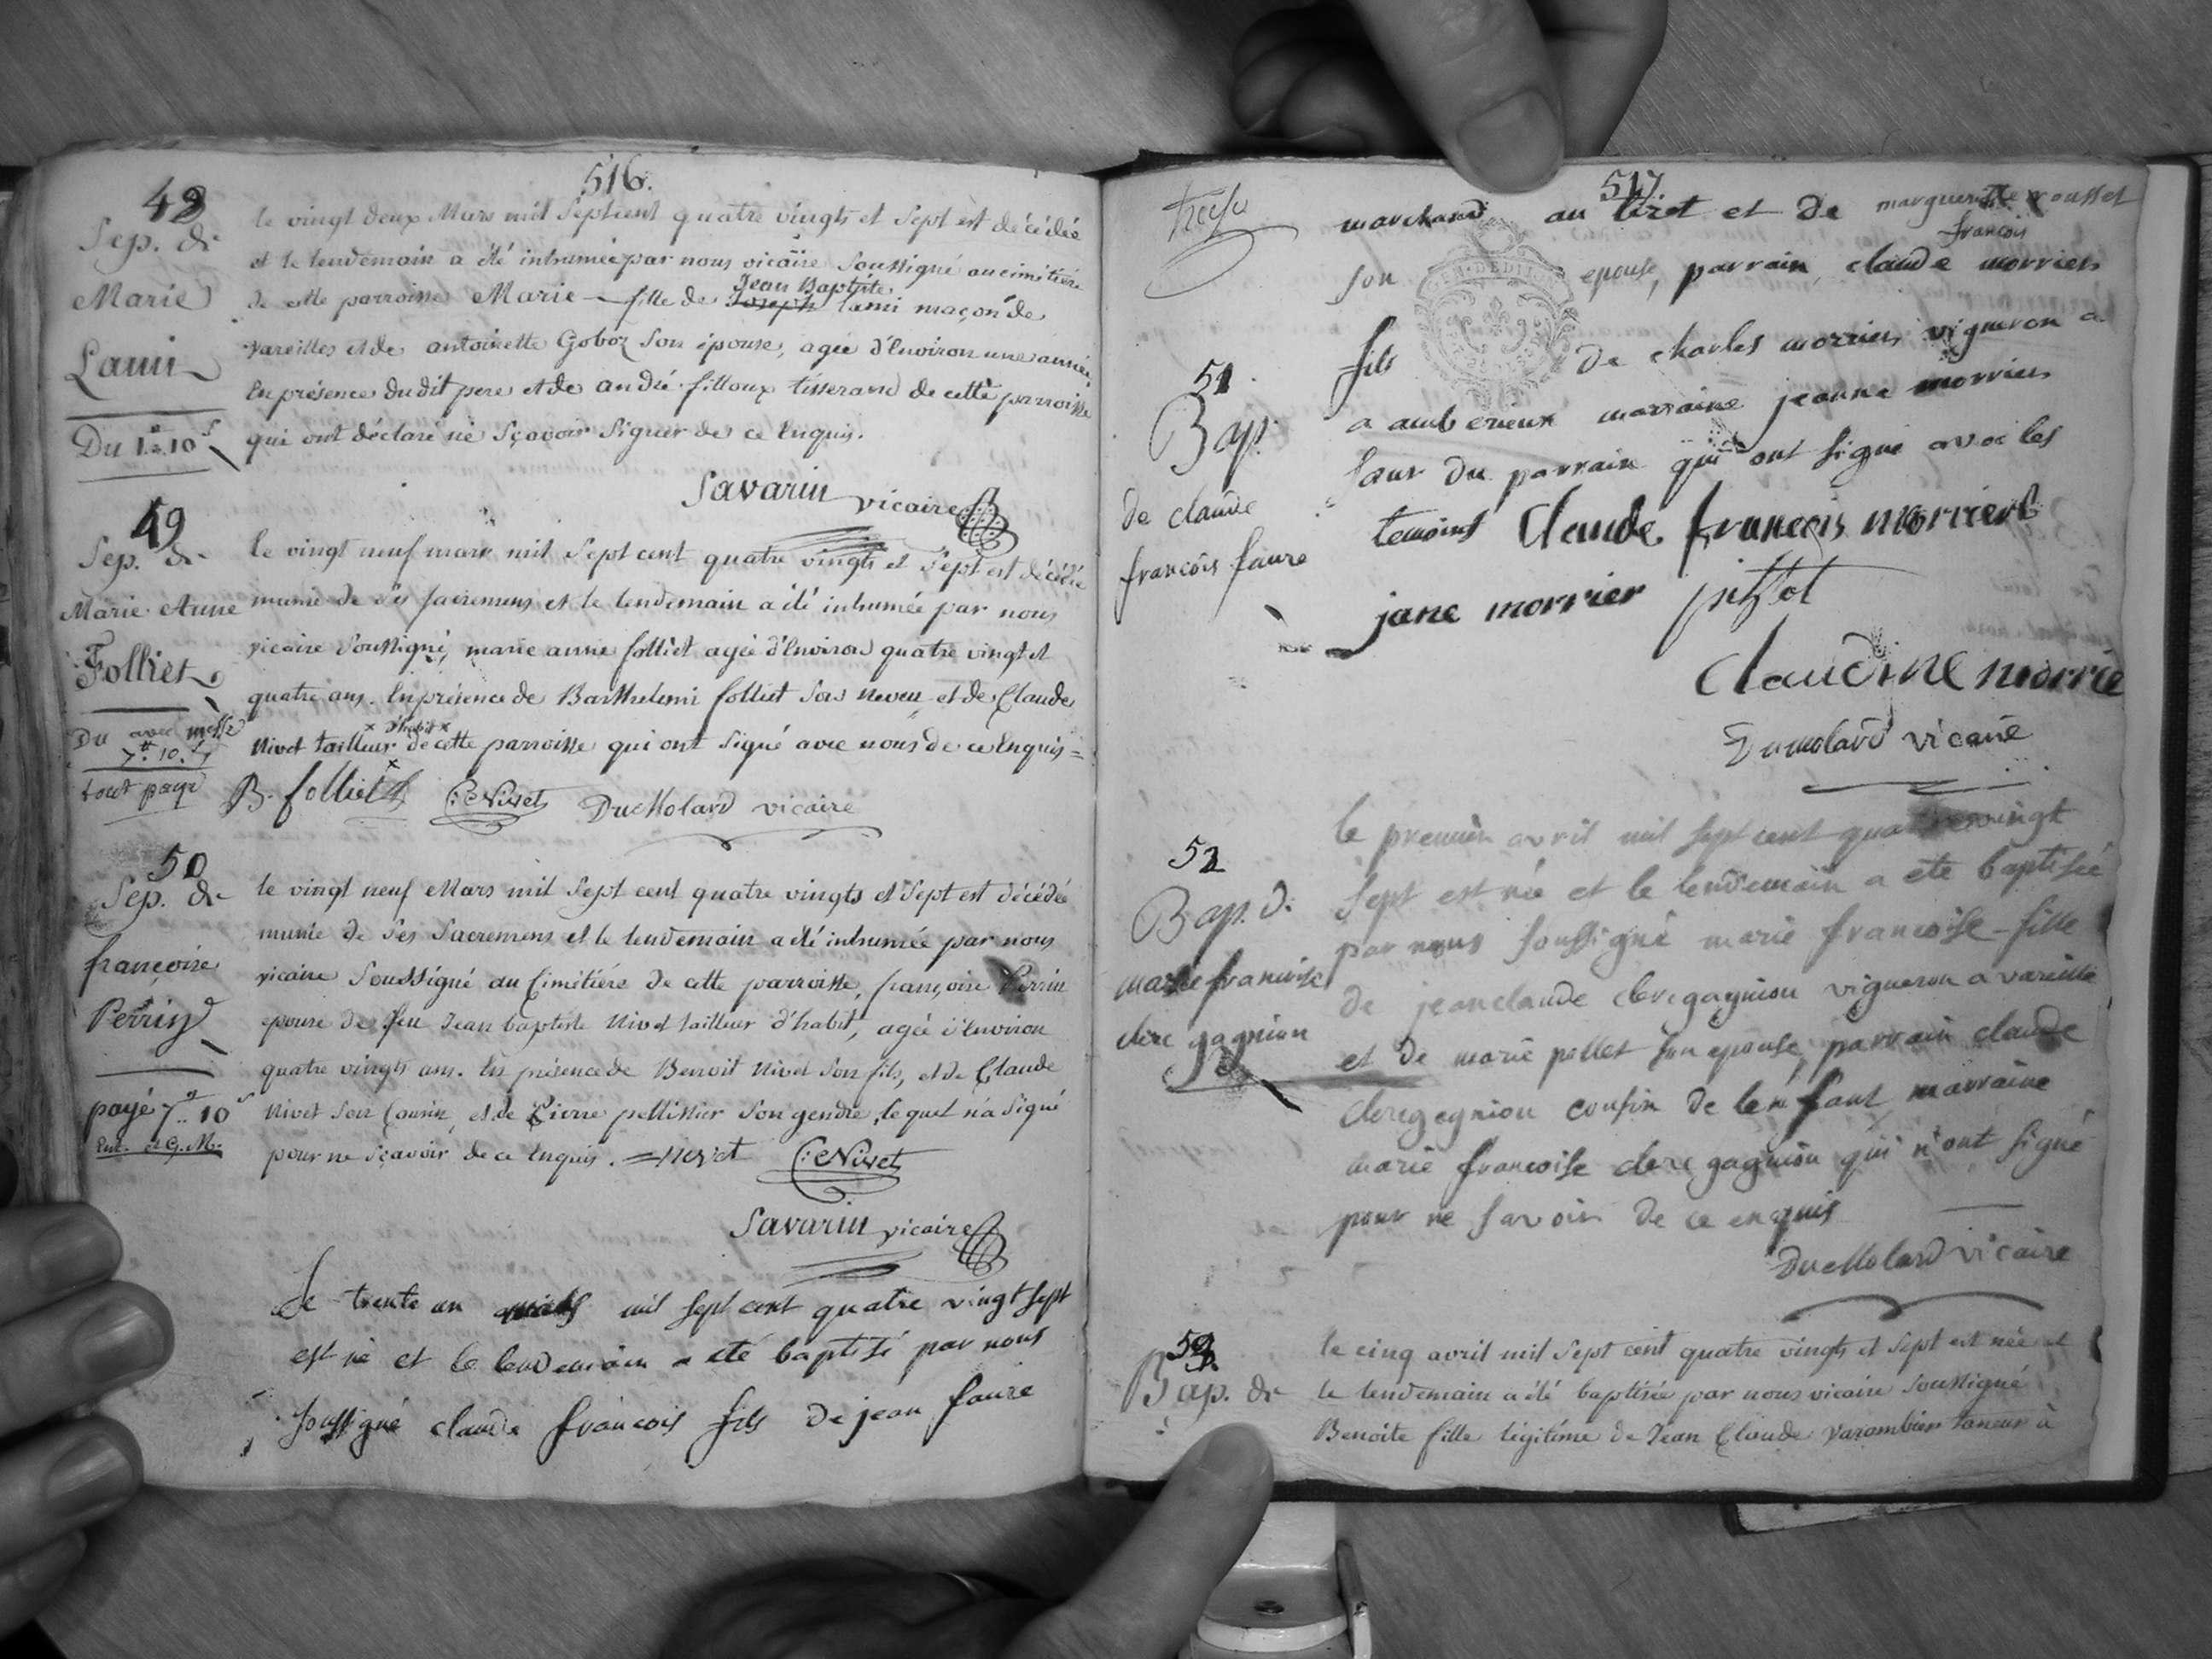 516.
48
Sep. de
Marie
Lami
Du 1# 10s
le vingt deux Mars mil Septcent quatre vingts et Sept est décédée
et le lendemain a été inhumée par nous vicaire Soussigné au cimétiére
de cette parroisse Marie fille de Joseph Jean Baptiste lami maçon de
Vareilles et de antoinette Goboz Son épouse, agée d'Environ une année,
En présence dudit pere et de andré filloux tisserand de cette parroisse
qui ont déclaré ne Sçavoir Signer de ce Enquis.
Savarin vicaire
49
Sep. de
Marie Anne
Folliet
Du avec messe
7# 10s
tout payé
le vingt neuf mars mil Sept cent quatre vingts et Sept est décédée
munie de Ses Sacremens et le lendemain a été inhumée par nous
vicaire Soussigné, marie anne folliet agée d'Environ quatre vingt et
quatre ans. En présence de Barthelemi folliet Son Neveu et de Claude
Nivet tailleur x d'habit x de cette parroisse qui ont Signé avec nous de ce Enquis =
B. folliet C: Nivet DueMolard vicaire
50
Sep. de
françoise
Perrin
payé 7# 10s
Ent. et G. M.
le vingt neuf Mars mil Sept cent quatre vingts et Sept est décédée
munie de Ses Sacremens et le lendemain a été inhumée par nous
vicaire Soussigné au Cimétiére de cette parroisse, françoise Perrin
epouse de feu Jean baptiste Nivet tailleur d'habit, agée d'Environ
quatre vingts ans. En présence de Benoit Nivet Son fils, et de Claude
Nivet Son Cousin, et de Pierre pellissier Son gendre, lequel n'a Signé
pour ne Sçavoir de ce Enquis. = Nivet C: Nivet
Savarin vicaire
Le trente un mars mil sept cent quatre vingt sept
est né et le lendemain a été baptisé par nous
soussigné claude francois fils de jean faure
517.
marchand au tiret et de marguerite rousset
son epouse, parrain claude françois morrier
fils de charles morrier vigneron a
a amberieux marraine jeanne morrier
saur du parrain qui ont signé avec les
temoins Claude francois morrier
jane morrier
Claudine morrie
Dumolard vicaire
51
Bap.
de claude
françois faure
52
Bap. d.
marie francoise
clerc gagnion
le premier avril mil sept cent quatrevingt
sept est née et le lendemain a ete baptisée
par nous soussigné marie francoise fille
de jeanclaude clercgagnion vigneron a vareille
et de marie pellet son epouse, parrain claude
clercgagnion cousin de lenfant marraine
marie francoise clerc gagnion qui n'ont signé
pour ne savoir de ce enquis
DueMolard vicaire
53
Bap. de
le cinq avril mil Sept cent quatre vingts et Sept est née et
le lendemain a été baptisée par nous vicaire Soussigné
Benoite fille légitime de Jean Claude Varambier taneur à